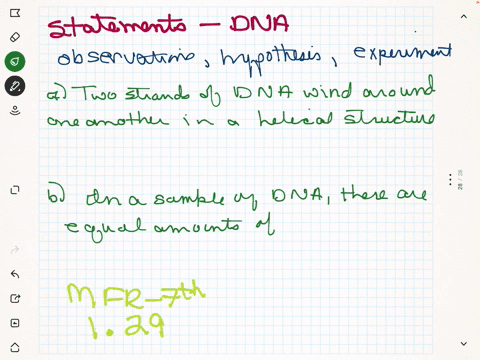 Statements — DNA
observations, hypothesis, experiment
a) Two strands of DNA wind around
one another in a helical structure
b) In a sample of DNA, there are
equal amounts of
MFR-7th
1.29
28 / 28